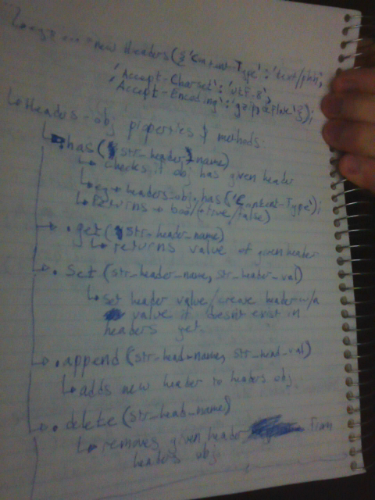 new Headers({'Content-Type':'text/plain',
'Accept-Charset':'utf-8',
'Accept-Encoding':'gzip,deflate'});
Headers-obj properties & methods:
.has(str_header_name)
checks if obj has given header
eg. headersobj.has('Content-Type');
returns bool(true/false)
.get(str_header_name)
returns value of given header
.set(str_header_name, str_header_val)
set header value/create header w/a
value if doesnt exist in
headers yet.
.append(str_head_name, str_head_val)
adds new header to headers obj.
.delete(str_head_name)
removes given header from
headers obj.